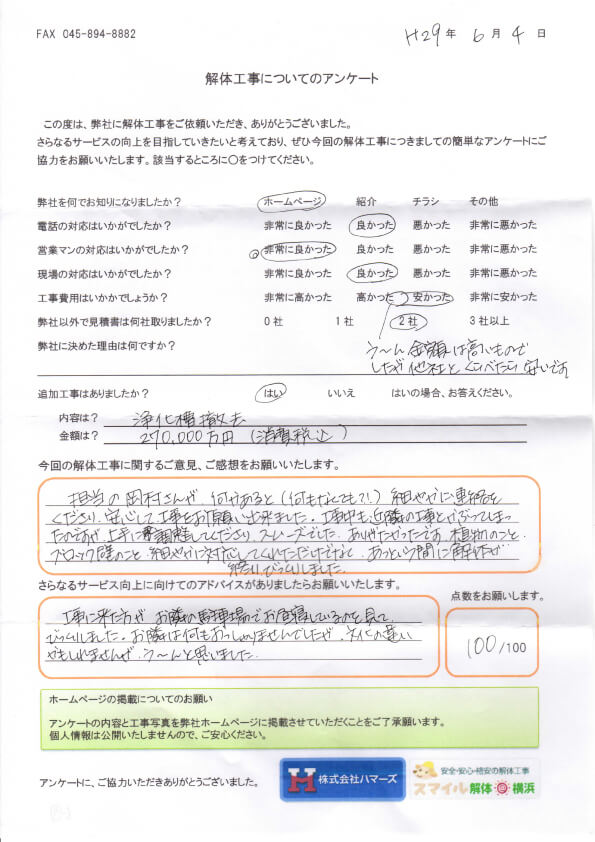 FAX 045-894-8882
H29年 6月 4日
解体工事についてのアンケート
この度は、弊社に解体工事をご依頼いただき、ありがとうございました。
さらなるサービスの向上を目指していきたいと考えており、ぜひ今回の解体工事につきましての簡単なアンケートにご
協力をお願いいたします。該当するところに〇をつけてください。
弊社を何でお知りになりましたか？ ホームページ 紹介 チラシ その他
電話の対応はいかがでしたか？ 非常に良かった 良かった 悪かった 非常に悪かった
営業マンの対応はいかがでしたか？ 非常に良かった 良かった 悪かった 非常に悪かった
現場の対応はいかがでしたか？ 非常に良かった 良かった 悪かった 非常に悪かった
工事費用はいかかでしょうか？ 非常に高かった 高かった 安かった 非常に安かった
弊社以外で見積書は何社取りましたか？ 0社 1社 2社 3社以上
弊社に決めた理由は何ですか？
う〜ん 金額は高いもので
したが他社とくらべたら安いです
追加工事はありましたか？ はい いいえ はいの場合、お答えください。
内容は？ 浄化槽撤去
金額は？ 270,000万円（消費税込）
今回の解体工事に関するご意見、ご感想をお願いいたします。
担当の岡村さんが、何かあると（何もなくても?!）細やかに連絡を
くださり、安心して工事をお願い出来ました。工事中も近隣の工事とかぶってしまっ
たのですが、上手に調整してくださり、スムーズでした。ありがたかったです。植物のこと、
ブロック塀のこと、細やかに対応してくれただけでなく、あっという間に解体が
終わりびっくりしました。
さらなるサービス向上に向けてのアドバイスがありましたらお願いいたします。
点数をお願いします。
工事に来た方が、お隣の駐車場でお昼寝しているのを見て
びっくりしました。お隣は何もおっしゃいませんでしたが、文化の違い
かもしれませんが、う〜んと思いました。
100/100
ホームページの掲載についてのお願い
アンケートの内容と工事写真を弊社ホームページに掲載させていただくことをご了承願います。
個人情報は公開いたしませんので、ご安心ください。
アンケートに、ご協力いただきありがとうございました。
株式会社ハマーズ
安全・安心・格安の解体工事
スマイル解体@横浜